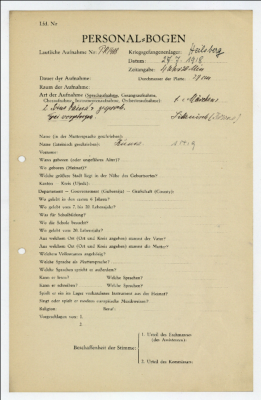 Lfd. Nr.
PERSONAL-BOGEN
Lautliche Aufnahme Nr.:
Kriegsgefangenenlager: Heilsberg
Datum: 29. 7. 1918
Zeitangabe:
Dauer der Aufnahme:
Durchmesser der Platte: cm
Raum der Aufnahme:
Art der Aufnahme (Sprechaufnahme, Gesangaufnahme,
Choraufnahme, Instrumentenaufnahme, Orchesteraufnahme):
Name (in der Muttersprache geschrieben):
Name (lateinisch geschrieben):
Vorname:
Wann geboren (oder ungefähres Alter)?
Wo geboren (Heimat)?
Welche größere Stadt liegt in der Nähe des Geburtsortes?
Kanton — Kreis (Ujedz):
Departement — Gouvernement (Gubernija) — Grafschaft (County):
Wo gelebt in den ersten 6 Jahren?
Wo gelebt vom 7. bis 20. Lebensjahr?
Was für Schulbildung?
Wo die Schule besucht?
Wo gelebt vom 20. Lebensjahr?
Aus welchem Ort (Ort und Kreis angeben) stammt der Vater?
Aus welchem Ort (Ort und Kreis angeben) stammt die Mutter?
Welchem Volksstamm angehörig?
Welche Sprache als Muttersprache?
Welche Sprachen spricht er außerdem?
Kann er lesen? Welche Sprachen?
Kann er schreiben? Welche Sprachen?
Spielt er ein im Lager vorhandenes Instrument aus der Heimat?
Singt oder spielt er modern europäische Musikweisen?
Religion: Beruf:
Vorgeschlagen von: 1.
2.
Beschaffenheit der Stimme:
1. Urteil des Fachmannes
(des Assistenten):
2. Urteil des Kommissars: